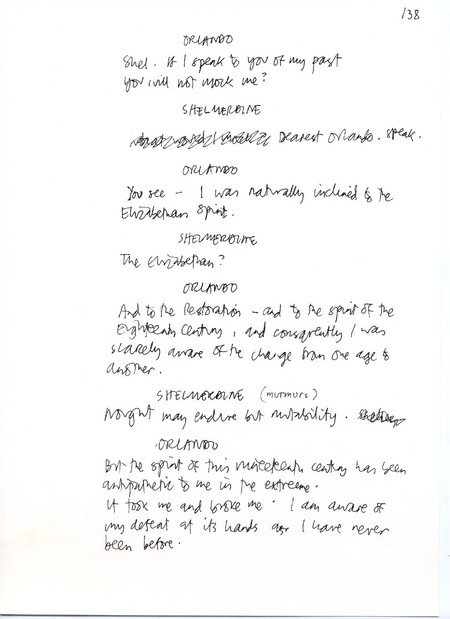 138
ORLANDO
Shel. If I speak to you of my past
you will not mock me?
SHELMERDINE
Dearest Orlando. Speak.
ORLANDO
You see – I was naturally inclined to the
Elizabethan Spirit.
SHELMERDINE
The Elizabethan?
ORLANDO
And to the Restoration – and to the spirit of the
Eighteenth Century, and consequently I was
scarcely aware of the change from one age to
another.
SHELMERDINE (murmurs)
Nought may endure but mutability.
ORLANDO
But the spirit of this nineteenth century has been
antipathetic to me in the extreme.
It took me and broke me. I am aware of
my defeat at its hands as I have never
been before.